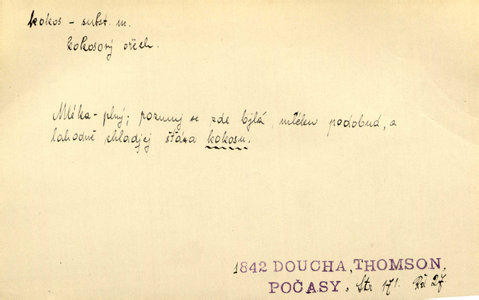 kokos - subst. m.
kokosový ořech.
Mléka-plný; rozumej se zde býlá, mléku podobná, a
lahodně chladjcj šťáva kokosu.
1842 DOUCHA, THOMSON,
POČASY, Str. 171.